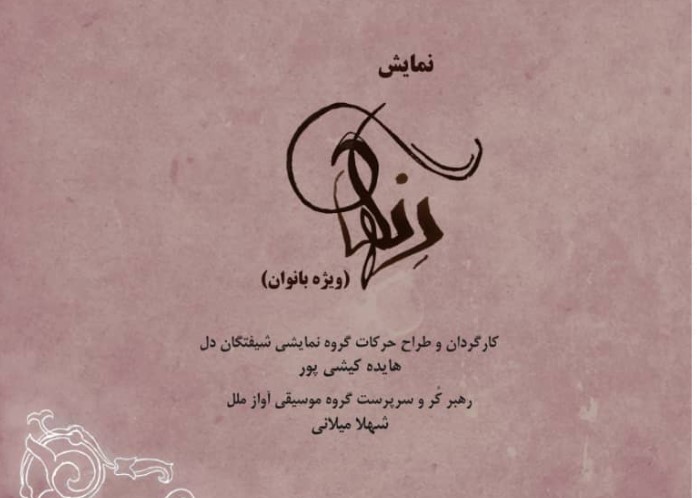 نمایش
رنگها
(ویژه بانوان)
کارگردان و طراح حرکات گروه نمایشی شیفتگان دل
هایده کیشی پور
رهبر کُر و سرپرست گروه موسیقی آواز ملل
شهلا میلانی